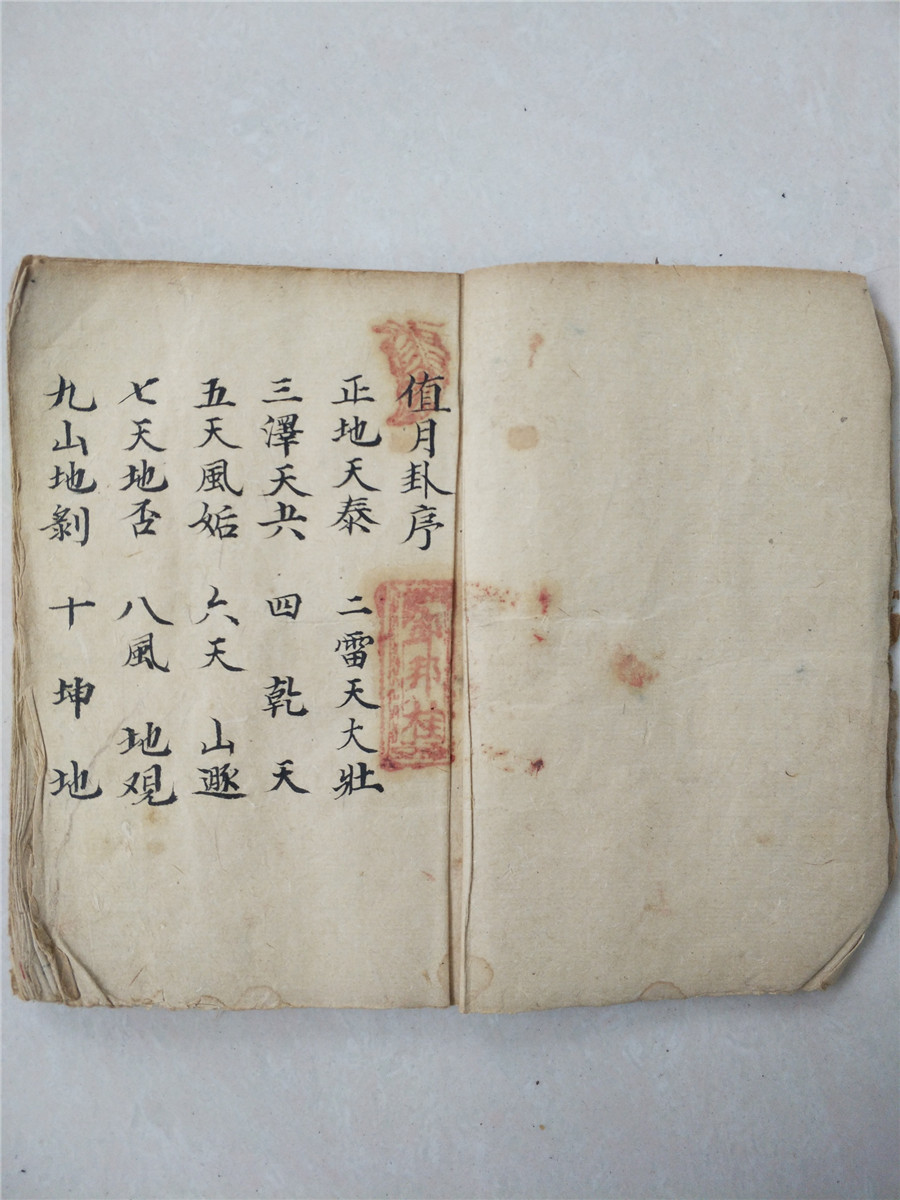 值月卦序
正地天泰 二雷天大壯
三澤天夬 四乾天
五天風姤 六天山遯
七天地否 八風地观
九山地剝 十坤地
邦柱